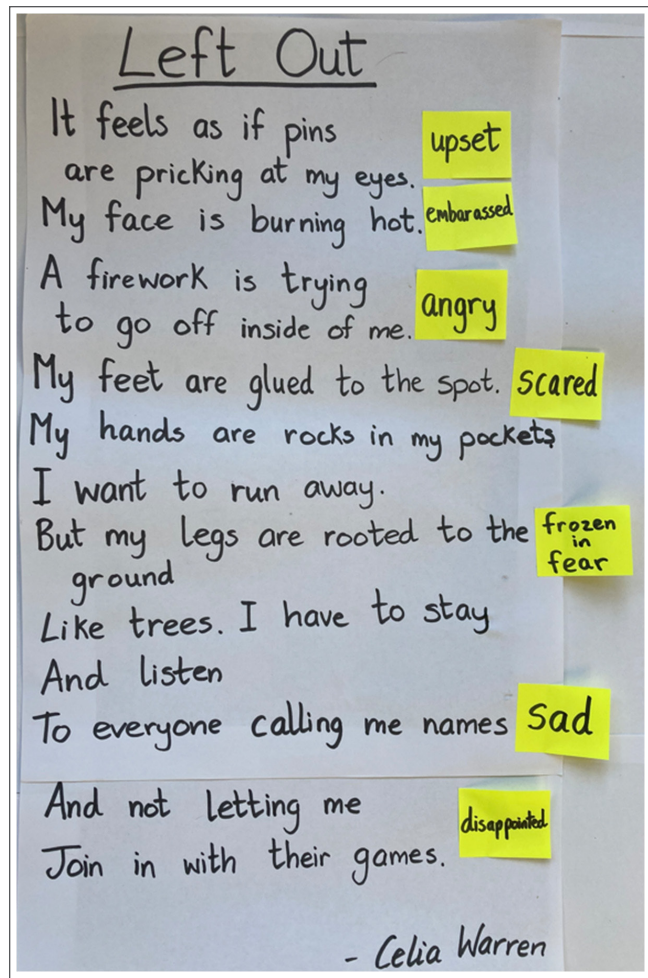 Left Out
It feels as if pins
upset
are pricking at my eyes.
My face is burning hot.
embarassed
A firework is trying
to go off inside of me.
angry
My feet are glued to the spot.
scared
My hands are rocks in my pockets
I want to run away.
But my legs are rooted to the
frozen
in
fear
ground
Like trees. I have to stay
And listen
To everyone calling me names
sad
And not letting me
disappointed
Join in with their games.
- Celia Warren